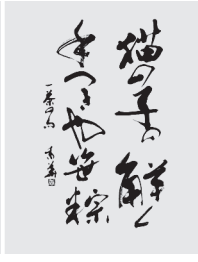 猫の子の解く
手つきや笹粽
一茶の句